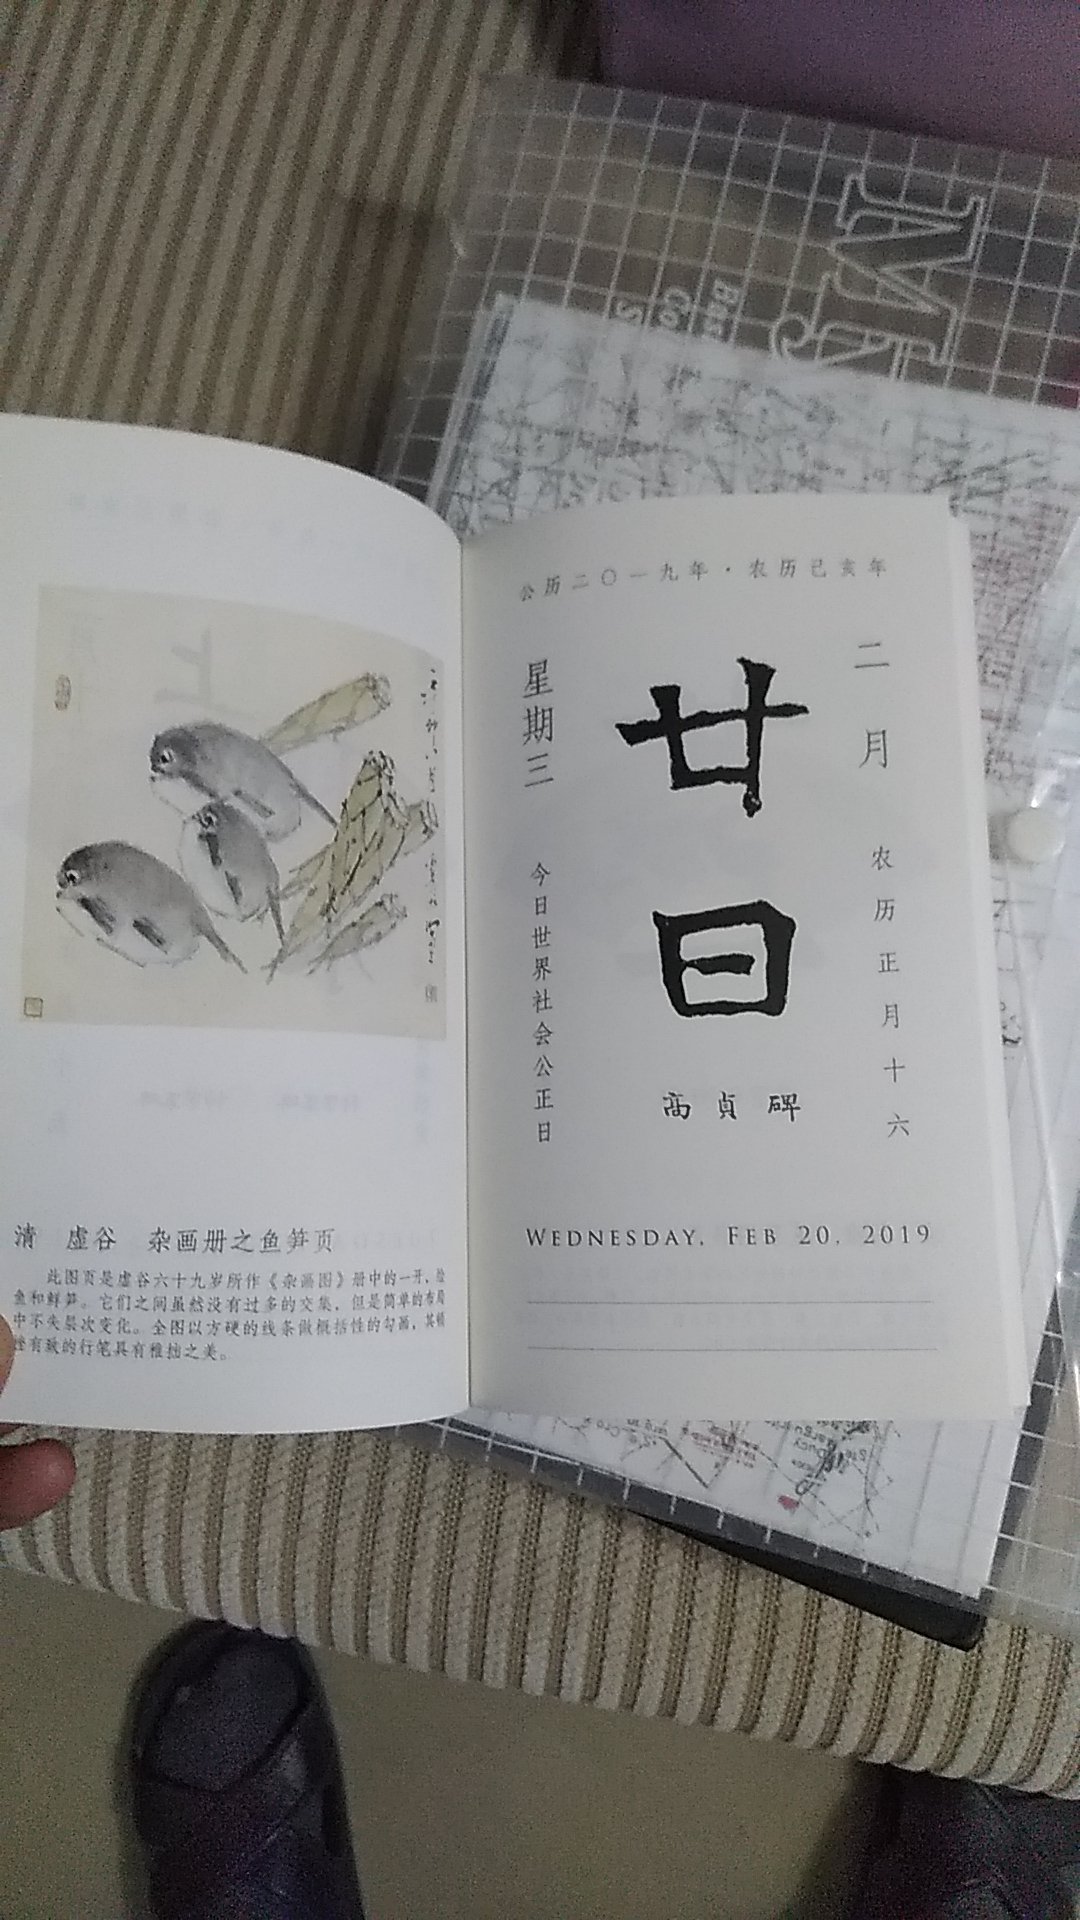 清 虚谷 杂画册之鱼笋页
此图页是虚谷六十九岁所作《杂画图》册中的一开，绘
鱼和鲜笋。它们之间虽然没有过多的交集，但是简单的布局
中不失层次变化。全图以方硬的线条做概括性的勾画，其顿
挫有致的行笔具有稚拙之美。
公历二〇一九年·农历己亥年
二月
农历正月十六
廿日
高贞碑
星期三
今日世界社会公正日
WEDNESDAY, FEB 20, 2019